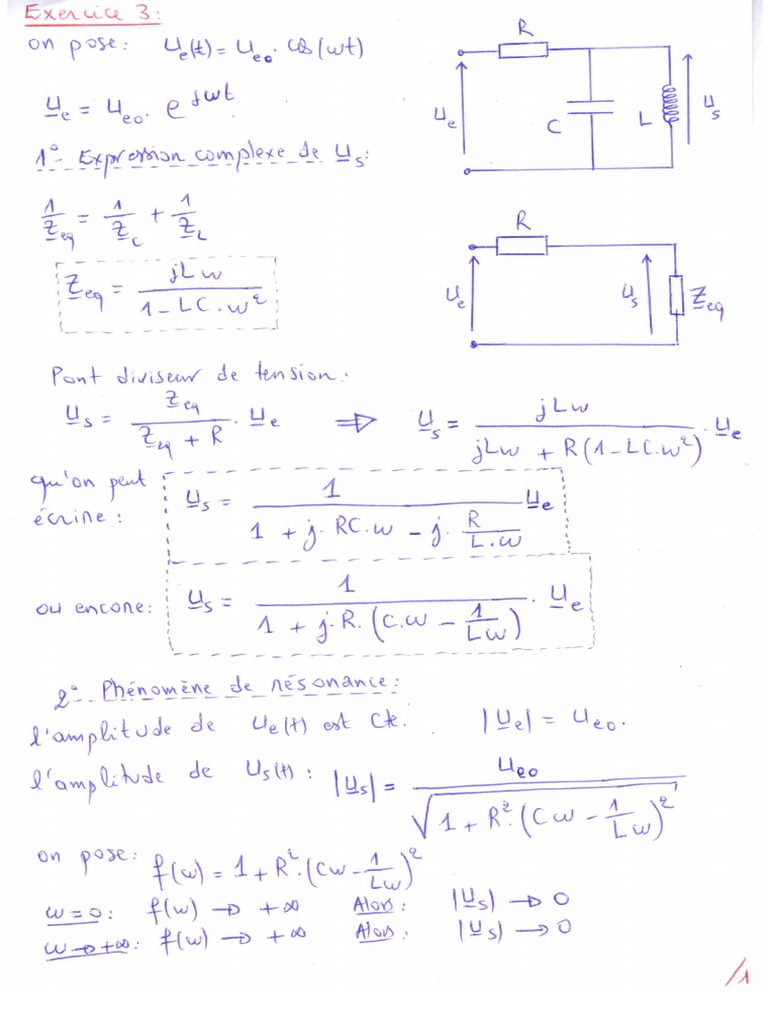 Exercice 3:
on pose: Ue(t) = Ueo. cos(wt)
Ue = Ueo. e^jwt
1°- Expression complexe de Us:
1/Zeq = 1/Zc + 1/ZL
Zeq = jLw / (1 - LC.w²)
R
Ue
C
L
Us
R
Ue
Us
Zeq
Pont diviseur de tension:
Us = Zeq / (Zeq + R) . Ue ⇒ Us = jLw / (jLw + R(1 - LC.w²)) . Ue
qu'on peut écrire: Us = 1 / (1 + j. RC.w - j. R/(L.w)) Ue
ou encore: Us = 1 / (1 + j.R.(C.w - 1/(Lw))) . Ue
2°- Phénomène de résonance:
l'amplitude de Ue(t) est Cte. |Ue| = Ueo.
l'amplitude de Us(t): |Us| = Ueo / √(1 + R².(Cw - 1/(Lw))²)
on pose: f(w) = 1 + R².(Cw - 1/(Lw))²
w=0: f(w) → +∞ Alors: |Us| → 0
w→+∞: f(w) → +∞ Alors: |Us| → 0
/1